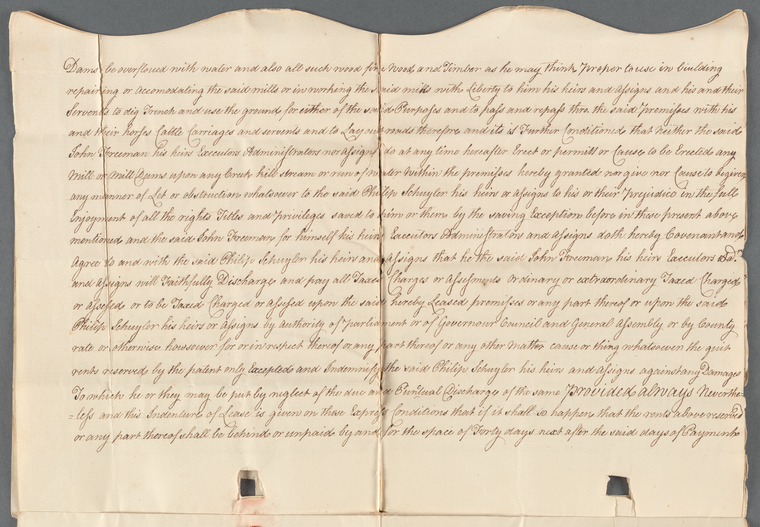 Dams be overflowed with water and also all such wood fire wood and Timber as he may think Proper to use in building
repairing or accomodating the said mills or in working the said mills with Liberty to him his heirs and assigns and his and their
Servents to dig Trench and use the ground for either of the said Perposes and to pass and repass thro the said Premisses with his
and their horses Cattle Carriages and servents and to Lay out roads therefore and its is Further Conditioned that neither the said
John Freeman his heirs Executors Administrators nor assigns do at any time hereafter Erect or permitt or Cause to be Erected any
Mill or Mill Dams upon any Creek kill stream or run of water Within the premisses hereby granted nor give nor Cause to be given
any manner of Let or obstruction whatsoever to the said Philip Schuyler his heirs or assigns to his or their Prejudice in the full
Enjoyment of all the rights Titles and Priviledges saved to him or them by the saving Exception before in these present above
mentioned and the said John Freeman for himself his heirs Executors Administrators and assigns doth hereby Covenant and
Agree to and with the said Philip Schuyler his heirs and assigns that he the said John Freeman his heirs Executors
and assigns will Faithfully Discharge and pay all Taxes Charges or assessments ordinary or extraordinary Taxed Charged
or assessed or to be Taxed Charged or assessed upon the said hereby Leased premisses or any part thereof or upon the said
Philip Schuyler his heirs or assigns by Authority of Parliament or of Governour Council and General Assembly or by County
rate or otherwise howsoever for or in respect thereof or any part thereof or any other Matter cause or thing whatsoever the quit
rents reserved by the patent only Excepted and Indemnify the said Philip Schuyler his heirs and assigns against any Damages
To which he or they may be put by neglect of the due and Punctual Discharge of the same Provided always Neverthe-
-less and this Indenture of Lease is given on these Express Conditions that if it shall so happen that the rents above reserved
or any part thereof shall be behind or unpaid by and for the space of Forty days next after the said days of Payment